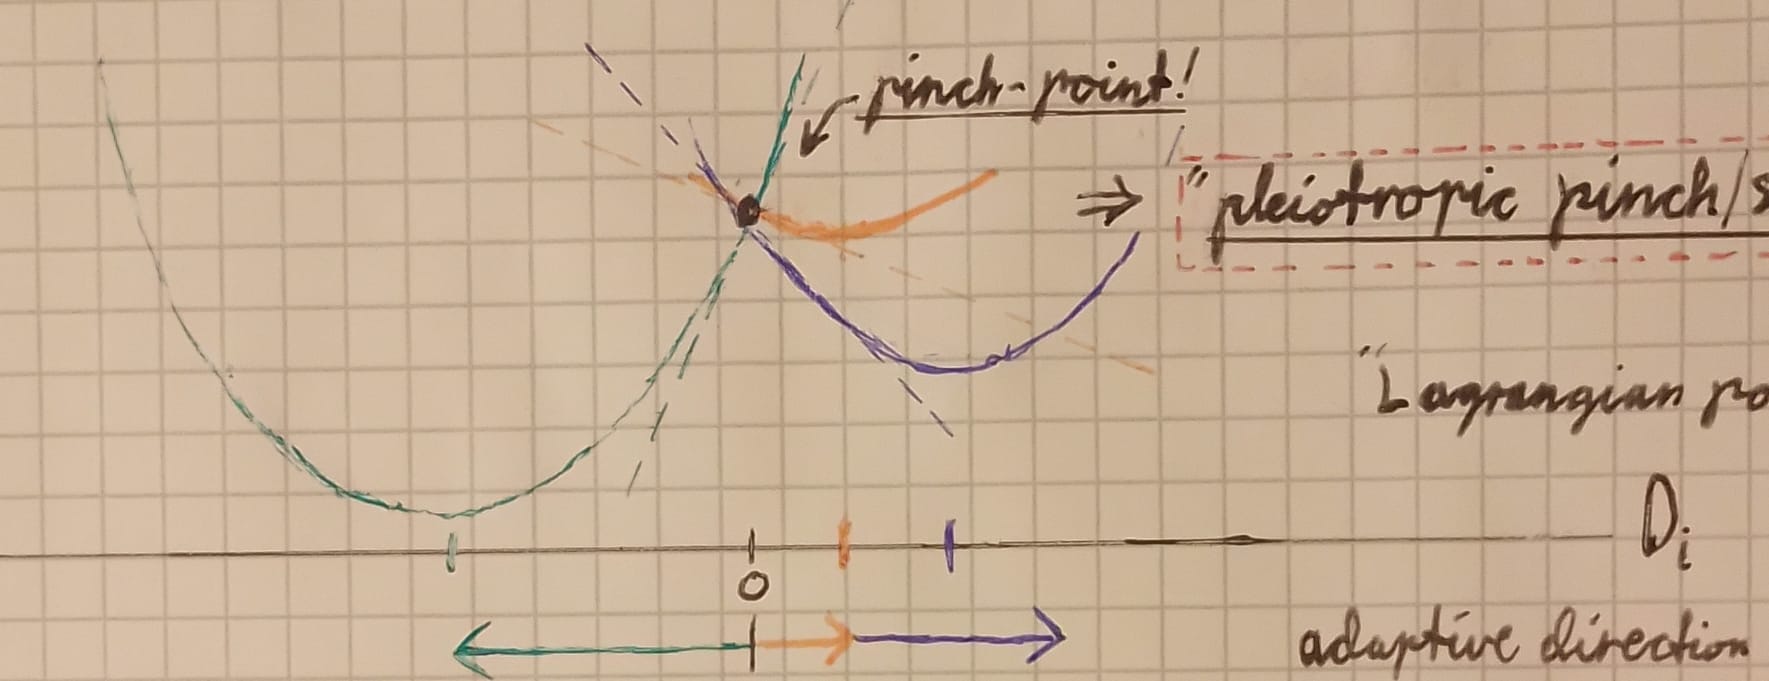 pinch-point!
⇒ "pleiotropic pinch/s
"Lagrangian po
D_i
0
adaptive direction